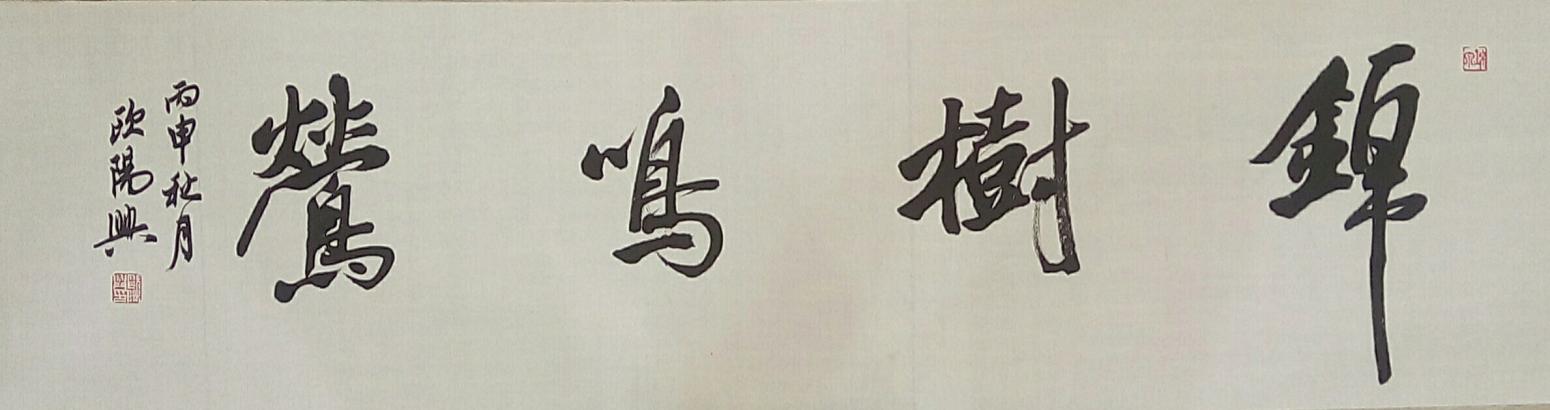 錦樹鳴鶯
丙申秋月
歐陽興